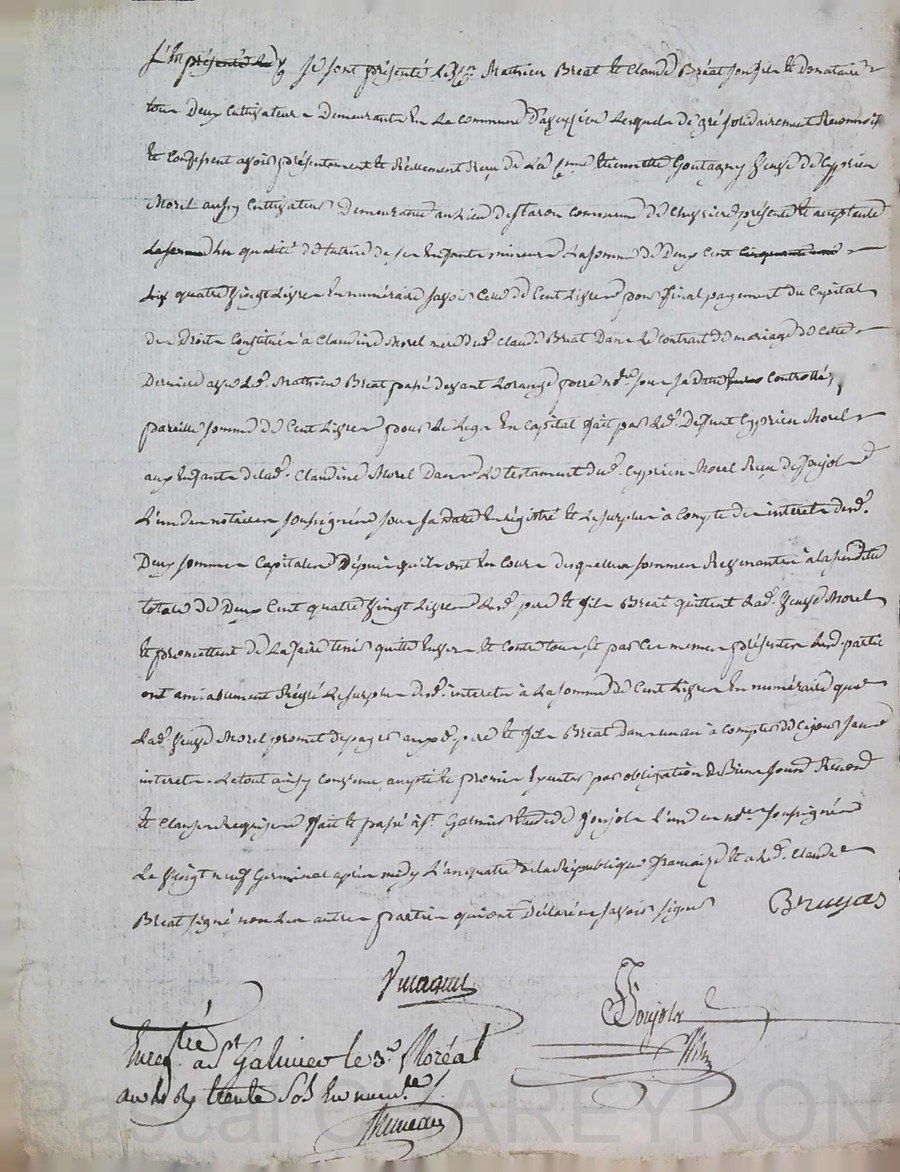 se sont présenté les Cns Mathieu Breat et Claude Bréat son fils et donataire
tous deux cultivateurs demeurants en la commune d'aveizieu lesquels de gré solidairement Reconnois
et confessent avoir présentement et Réellement Reçu de la Cnne Etiennette Goutagny veuve de Cyprien
Morel aussy cultivateur demeurante au lieu de commune de Chevriere présente et acceptante
en qualité de tutrice de ses Enfants mineurs la somme de deux Cent
quatre vingt Livres En numéraire savoir Celle de Cent Livres pour final payement du Capital
des Droits Constitués à Claudine Morel mere dud. Claude Breat Dans le contrat de mariage de cette
Derniere avec led. Mathieu Breat passé devant notre sous sa date Controllé,
pareille somme de Cent Livres pour le Legs En Capital fait par led. Defunt Cyprien Morel
aux Enfants de lad. Claudine Morel Dans le testament dud. Cyprien Morel Reçu de Joujols
L'un des notaires soussignés sous sa date Enrégistré et le surplus à compte des interets desd.
Deux sommes Capitales Depuis qu'ils ont En Cours desquelles sommes Revenantes à la susditte
totale de Deux Cent quatre vingt Livres Lesd. pere et fils Breat quittent lad. veuve Morel
et promettent de la faire tenir quitte Envers et Contre tous, et par ces memes présentes Lesd. parties
ont amiablement Réglé le surplus desd. interets à la somme de Cent Livres En numéraire que
Lad. veuve Morel promet de payer auxd. pere et fils Breat dans un an à compter de ce jour sans
interets. Le tout ainsy Convenu accepté et promis Executer par obligation de Biens soumis Renonc
et Clauses Requises fait et passé à St. Galmier Etude de Joujols l'un des nores soussignés
Le vingt neuf Germinal après midy L'an quatre de la République française et a led. Claude
Breat signé non les autres parties qui ont Déclaré ne savoir signer
Bruyas
Joujols
Enregtré a St Galmier le 3e. floréal
an 4 Rç trente Sols En numre.
Pascal CHAREYRON